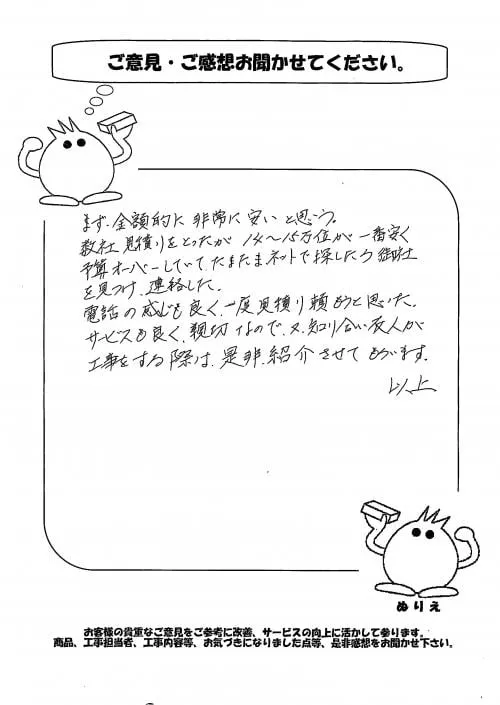 ご意見・ご感想お聞かせてください。
まず、金額的に非常に安いと思う。
数社見積りをとったが 14〜15万位が一番安く
予算オーバーしていてたまたまネットで探したら御社
を見つけ、連絡した。
電話の感じも良く、一度見積り頼もうと思いた。
サービスも良く、親切なので、又、知り合い友人が
工事をする際は、是非、紹介させてもらいます。
以上
ぬりえ
お客様の貴重なご意見をご参考に改善、サービスの向上に活かして参ります。
商品、工事担当者、工事内容等、お気づきになりました点等、是非感想をお聞かせ下さい。